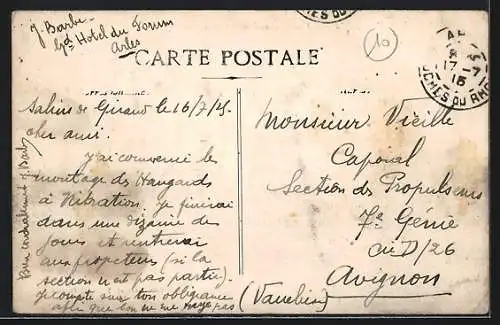 J. Barbe
Gd Hotel du Forum
Arles
CARTE POSTALE
10
17-7
15
CHES DU RHO
Salins de Giraud le 16/7/15.
cher ami.
J'ai commencé le
montage des Hangards
à Vibration. Je finirai
dans une dizaine de
jours et rentrerai
aux projecteurs (si la
section n'est pas partie).
Je compte sur ton obligeance
afin que l'on ne me
pas
Bien cordialement J. Barbe
Monsieur Vieille
Caporal
Section des Propulseurs
7e Génie
Cie D/26
Avignon
(Vaucluse)